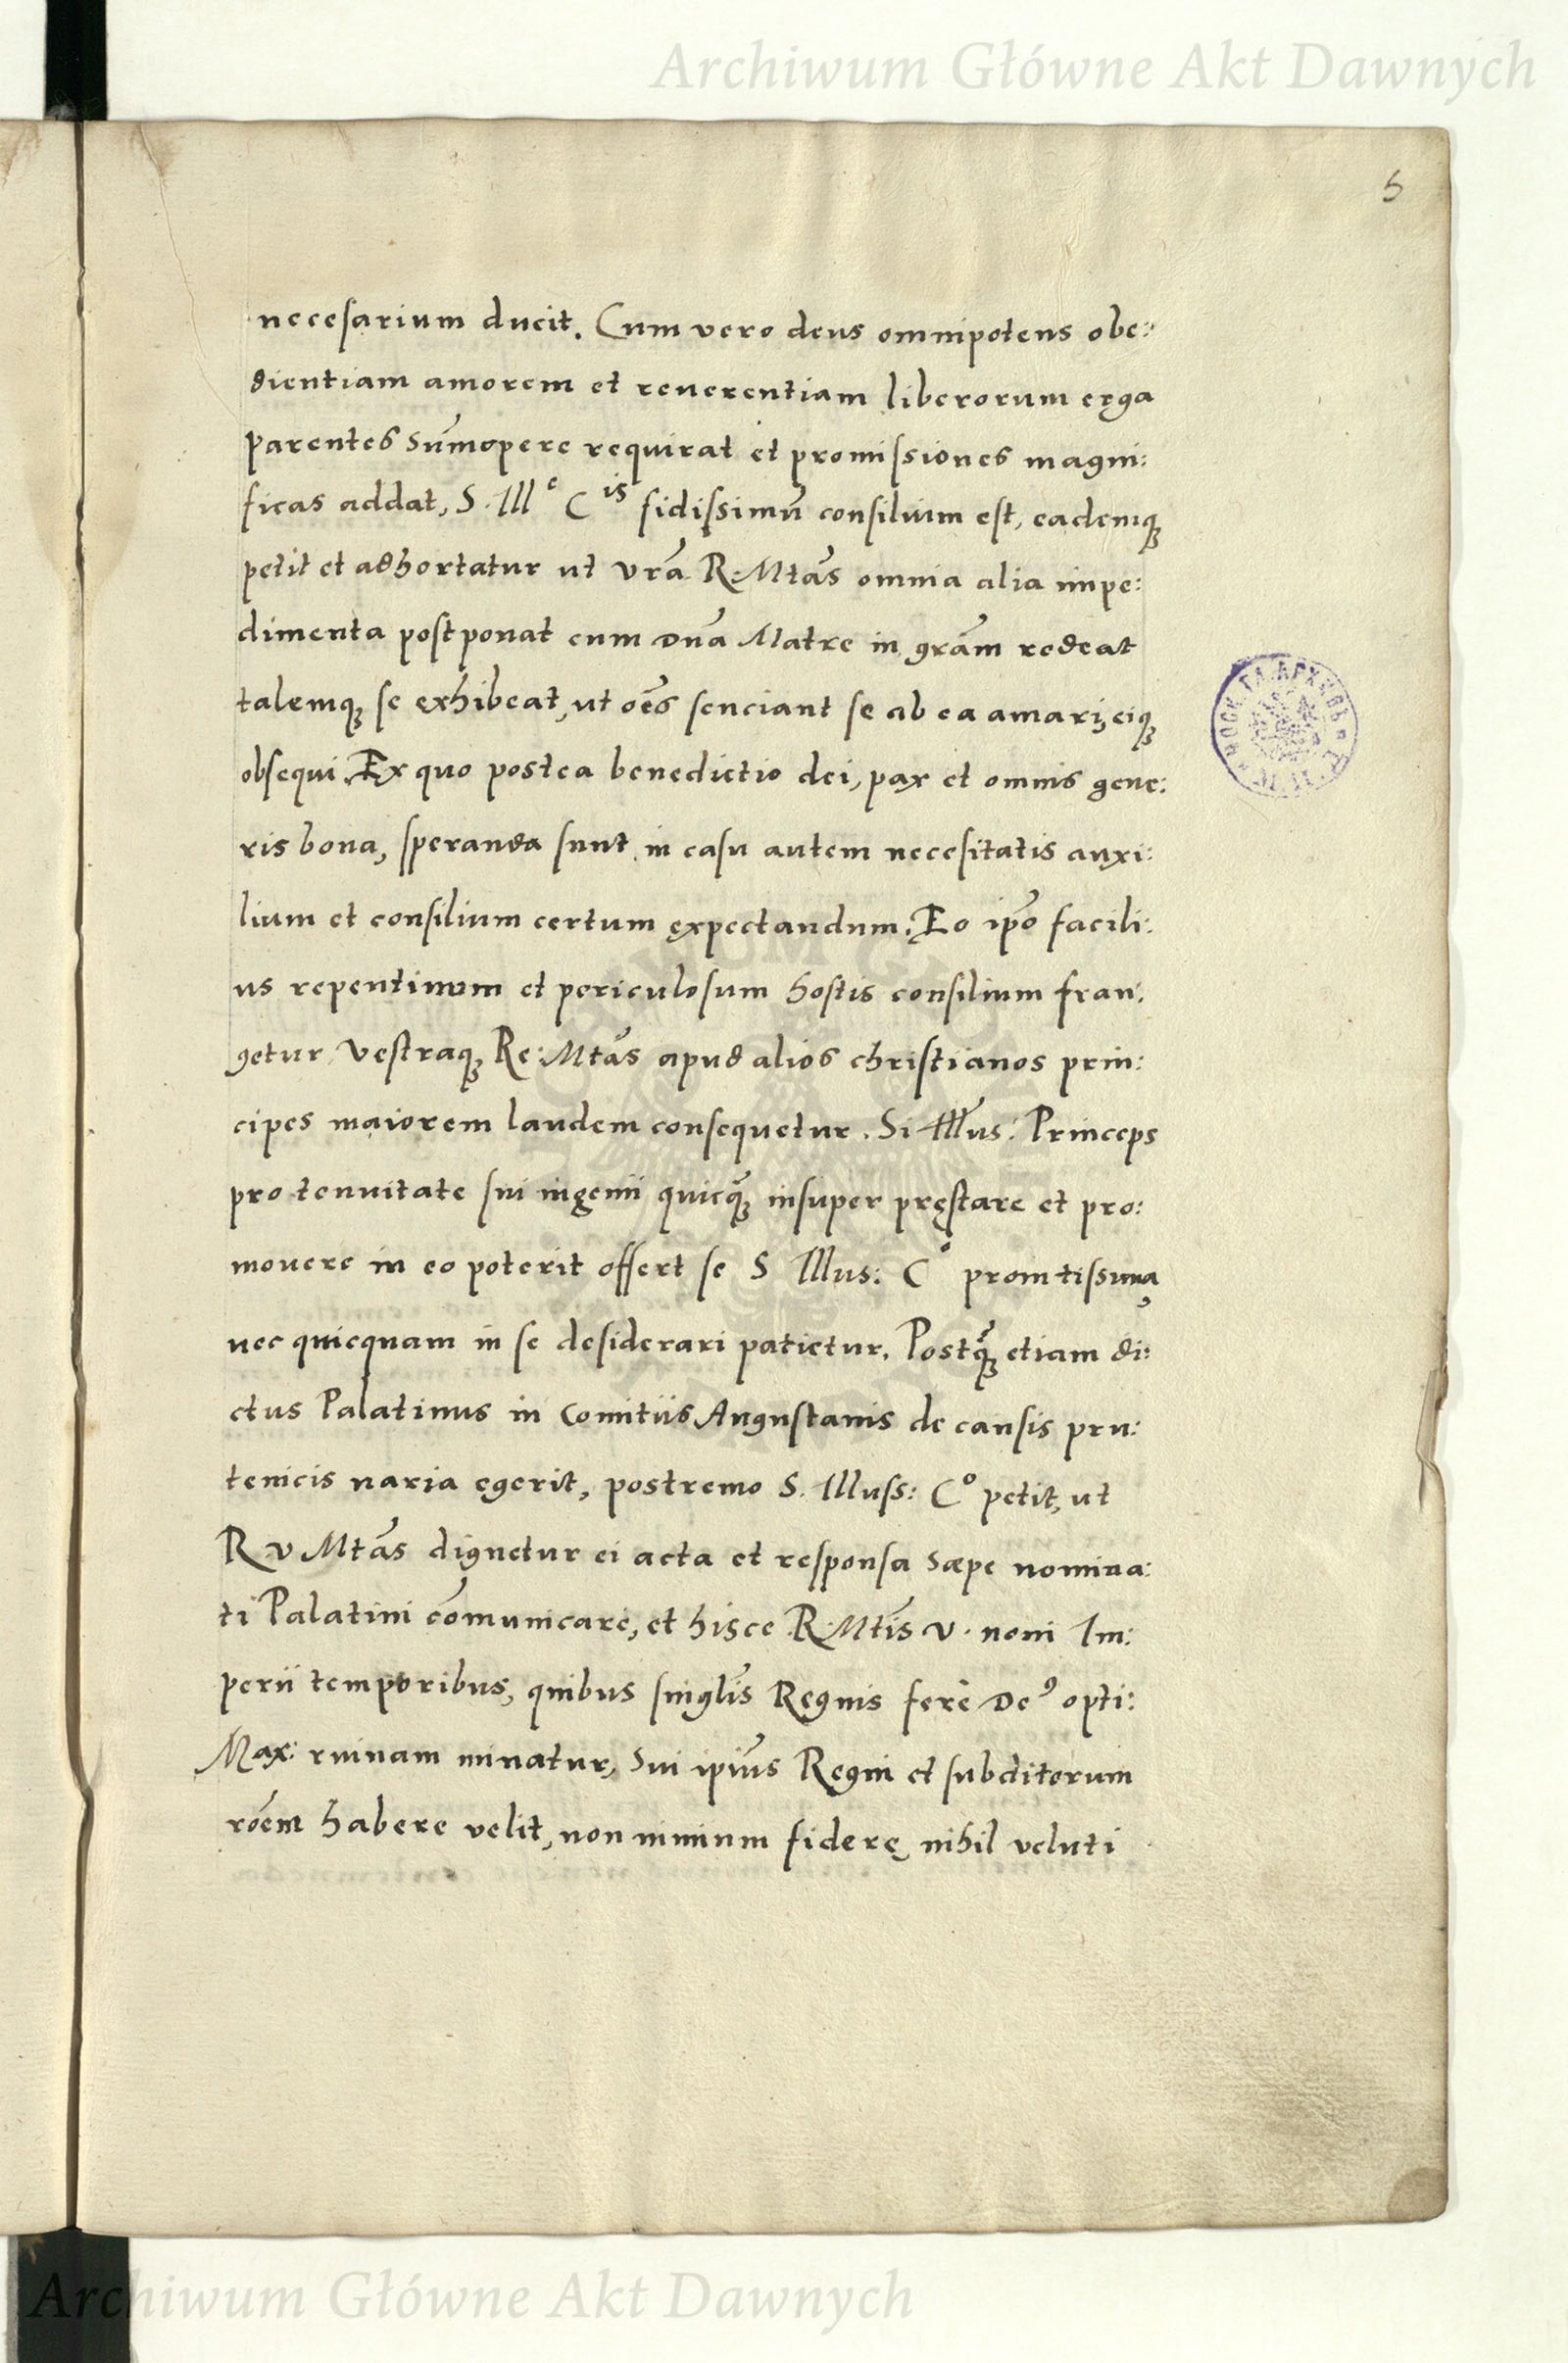 Archiwum Główne Akt Dawnych
5
necesarium ducit. Cum vero deus omnipotens obe:
dientiam amorem et reuerentiam liberorum erga
parentes sum̄opere requirat et promissiones magni:
ficas addat, S. Ill^e C^is fidissimū consilium est, eademqꝫ
petit et adhortatur ut vrā R. Mtās omnia alia impe:
dimenta postponat cum Dnā Matre in grām redeat
talemqꝫ se exhibeat, ut oēs senciant se ab ea amari, eiqꝫ
obsequi. Ex quo postea benedictio dei, pax et omnis gene:
ris bona, speranda sunt, in casu autem necesitatis auxi:
lium et consilium certum expectandum. Eo ipō facili:
us repentinum et periculosum hostis consilium fran:
getur, Vestraqꝫ Re: Mtās apud alios christianos prin:
cipes maiorem laudem consequetur. Si Illus: Princeps
pro tenuitate sui ingenii quicq̄ꝫ insuper pręstare et pro:
mouere in eo poterit offert se S Illus: C° promtissima,
nec quicquam in se desiderari patietur. Postq̄ꝫ etiam di:
ctus Palatinus in Comitiis Augustanis de causis pru:
tenicis varia egerit, postremo S. Illuss: C° petit, ut
R v Mtās dignetur ei acta et responsa sæpe nomina:
ti Palatini com̄unicare, et hisce R. Mtīs v. noui Im:
perii temporibus, quibus singlīs Regnis ferè De⁹ opti:
Max: ruinam minatur, sui ipīus Regni et subditorum
rōem habere velit, non nimium fidere nihil veluti
Archiwum Główne Akt Dawnych